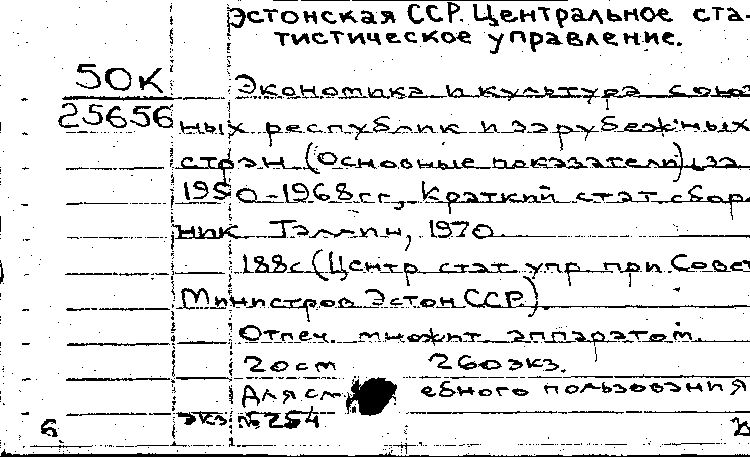 Эстонская ССР. Центральное ста-
тистическое управление.
50К
25656
Экономика и культура союз
ных республик и зарубежных
стран (Основные показатели) за
1950-1968гг, Краткий стат сбор
ник Таллин, 1970.
188с (Центр стат упр при Совет
Министров Эстон ССР).
Отпеч. множит. аппаратом.
20см 260экз.
Для сл ебного пользования
экз №254
6